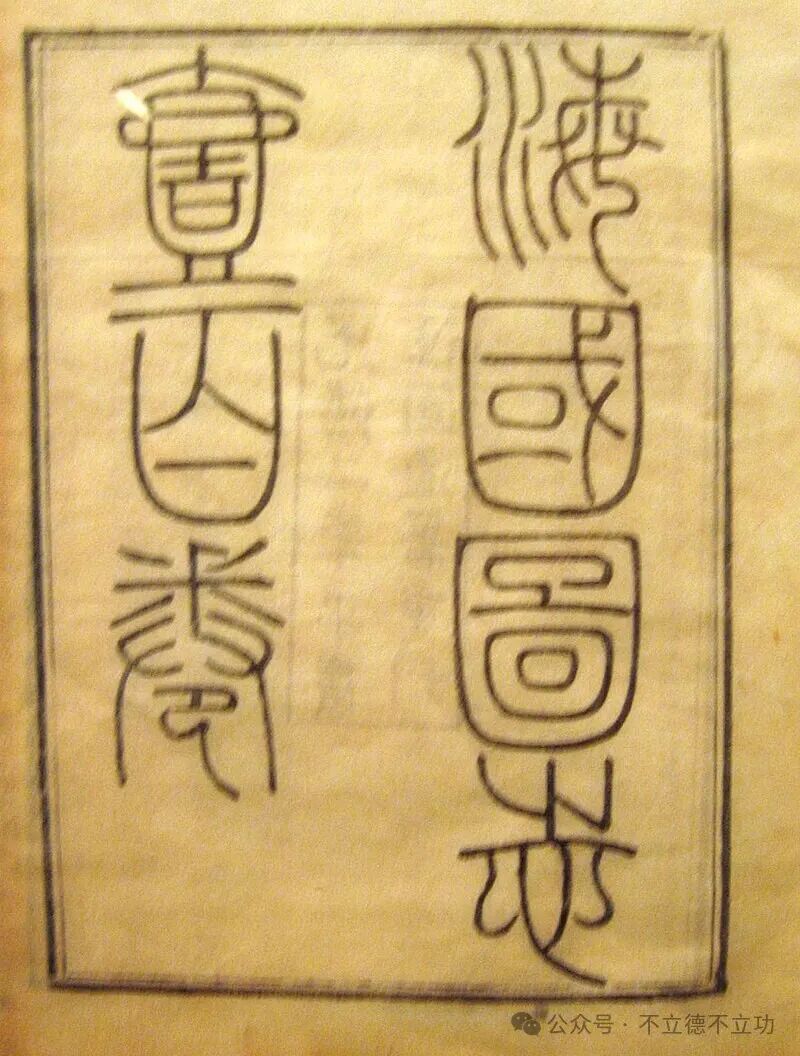 海國圖志
壹百卷
公众号 · 不立德不立功